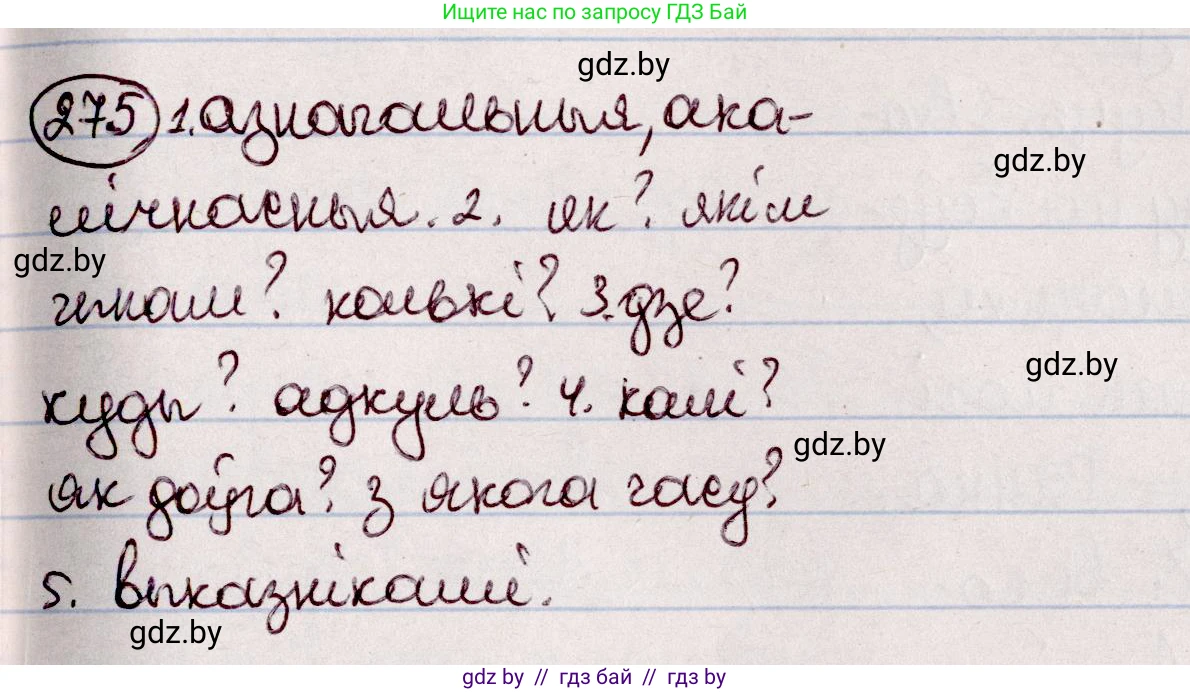 Ищите нас по запросу ГДЗ Бай
gdz.by
275 1. азначальныя, ака-
gdz.by
лічнасныя. 2. як? якім
gdz.by
чынам? колькі? 3. дзе?
gdz.by
куды? адкуль? 4. калі?
gdz.by
як доўга? з якога часу?
5. выказнікамі.
gdz.by
gdz.by // гдз бай // gdz.by